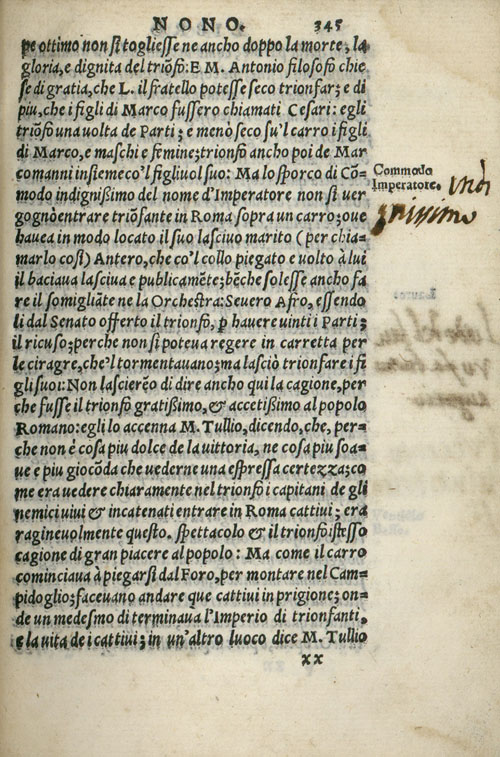 NONO. 345
pe ottimo non si togliesse ne ancho doppo la morte, la
gloria, e dignita del triõfo: E M. Antonio filosofo chie
se di gratia, che L. il fratello potesse seco trionfar; e di
piu, che i figli di Marco fussero chiamati Cesari: egli
triõfò una uolta de Parti; e menò seco su'l carro i figli
di Marco, e maschi e femine; trionfò ancho poi de Mar
comanni insieme co'l figliuol suo: Ma lo sporco di Cõ=
modo indignißimo del nome d'Imperatore non si uer
gognò entrare triõfante in Roma sopra un carro; oue
hauea in modo locato il suo lasciuo marito (per chia=
marlo cosi) Antero, che co'l collo piegato e uolto à lui
il baciaua lasciua e publicamẽte; bẽche solesse ancho fa
re il somigliãte ne la Orchestra: Seuero Afro, essendo
li dal Senato offerto il trionfo, p hauere uinti i Parti;
il ricuso; perche non si poteua regere in carretta per
le ciragre, che'l tormentauano; ma lasciò trionfare i fi
gli suoi: Non lascierẽo di dire ancho qui la cagione, per
che fusse il trionfo gratißimo, & accetißimo al popolo
Romano: egli lo accenna M. Tullio, dicendo, che, per=
che non è cosa piu dolce de la uittoria, ne cosa piu soa=
ue e piu giocõda che uederne una espressa certezza; co
me era uedere chiaramente nel trionfo i capitani de gli
nemici uiui & incatenati entrare in Roma cattiui; era
ragineuolmente questo. spettacolo & il trionfo istesso
cagione di gran piacere al popolo: Ma come il carro
cominciaua à piegarsi dal Foro, per montare nel Cam=
pidoglio; faceuano andare que cattiui in prigione; on=
de un medesmo dì terminaua l'Imperio di trionfanti,
e la uita de i cattiui; in un'altro luoco dice M. Tullio
xx
Commodo
Imperatore.
indi
gnissimo